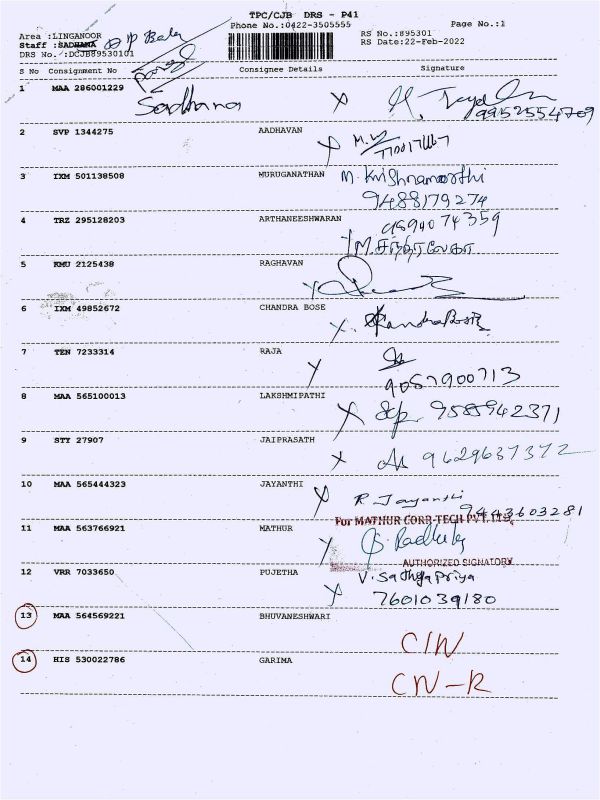 TPC/CJB DRS - P41
Phone No.:0422-3505555
Page No.:1
Area :LINGANOOR
Staff :SADHANA
DRS No. :DCJB89530101
RS No.:895301
RS Date:22-Feb-2022
S No Consignment No Consignee Details Signature
1 MAA 286001229 Sadhana
99525554709
2 SVP 1344275 AADHAVAN
3 IXM 501138508 MURUGANATHAN M. Krishnamoorthi
9488179274
4 TRZ 295128203 ARTHANEESHWARAN 9894074359
M.சந்திரலேகா
5 KMU 2125438 RAGHAVAN
6 IXM 49852672 CHANDRA BOSE
7 TEN 7233314 RAJA
9087900713
8 MAA 565100013 LAKSHMIPATHI 9585942371
9 STY 27907 JAIPRASATH 9629637372
10 MAA 565444323 JAYANTHI R. Jayanthi
9443603281
For MATHUR CORR-TECH PVT. LTD.
11 MAA 563766921 MATHUR
AUTHORIZED SIGNATORY
12 VRR 7033650 PUJETHA V. Sathyapriya
7601039180
13 MAA 564569221 BHUVANESHWARI
14 HIS 530022786 GARIMA CN-R